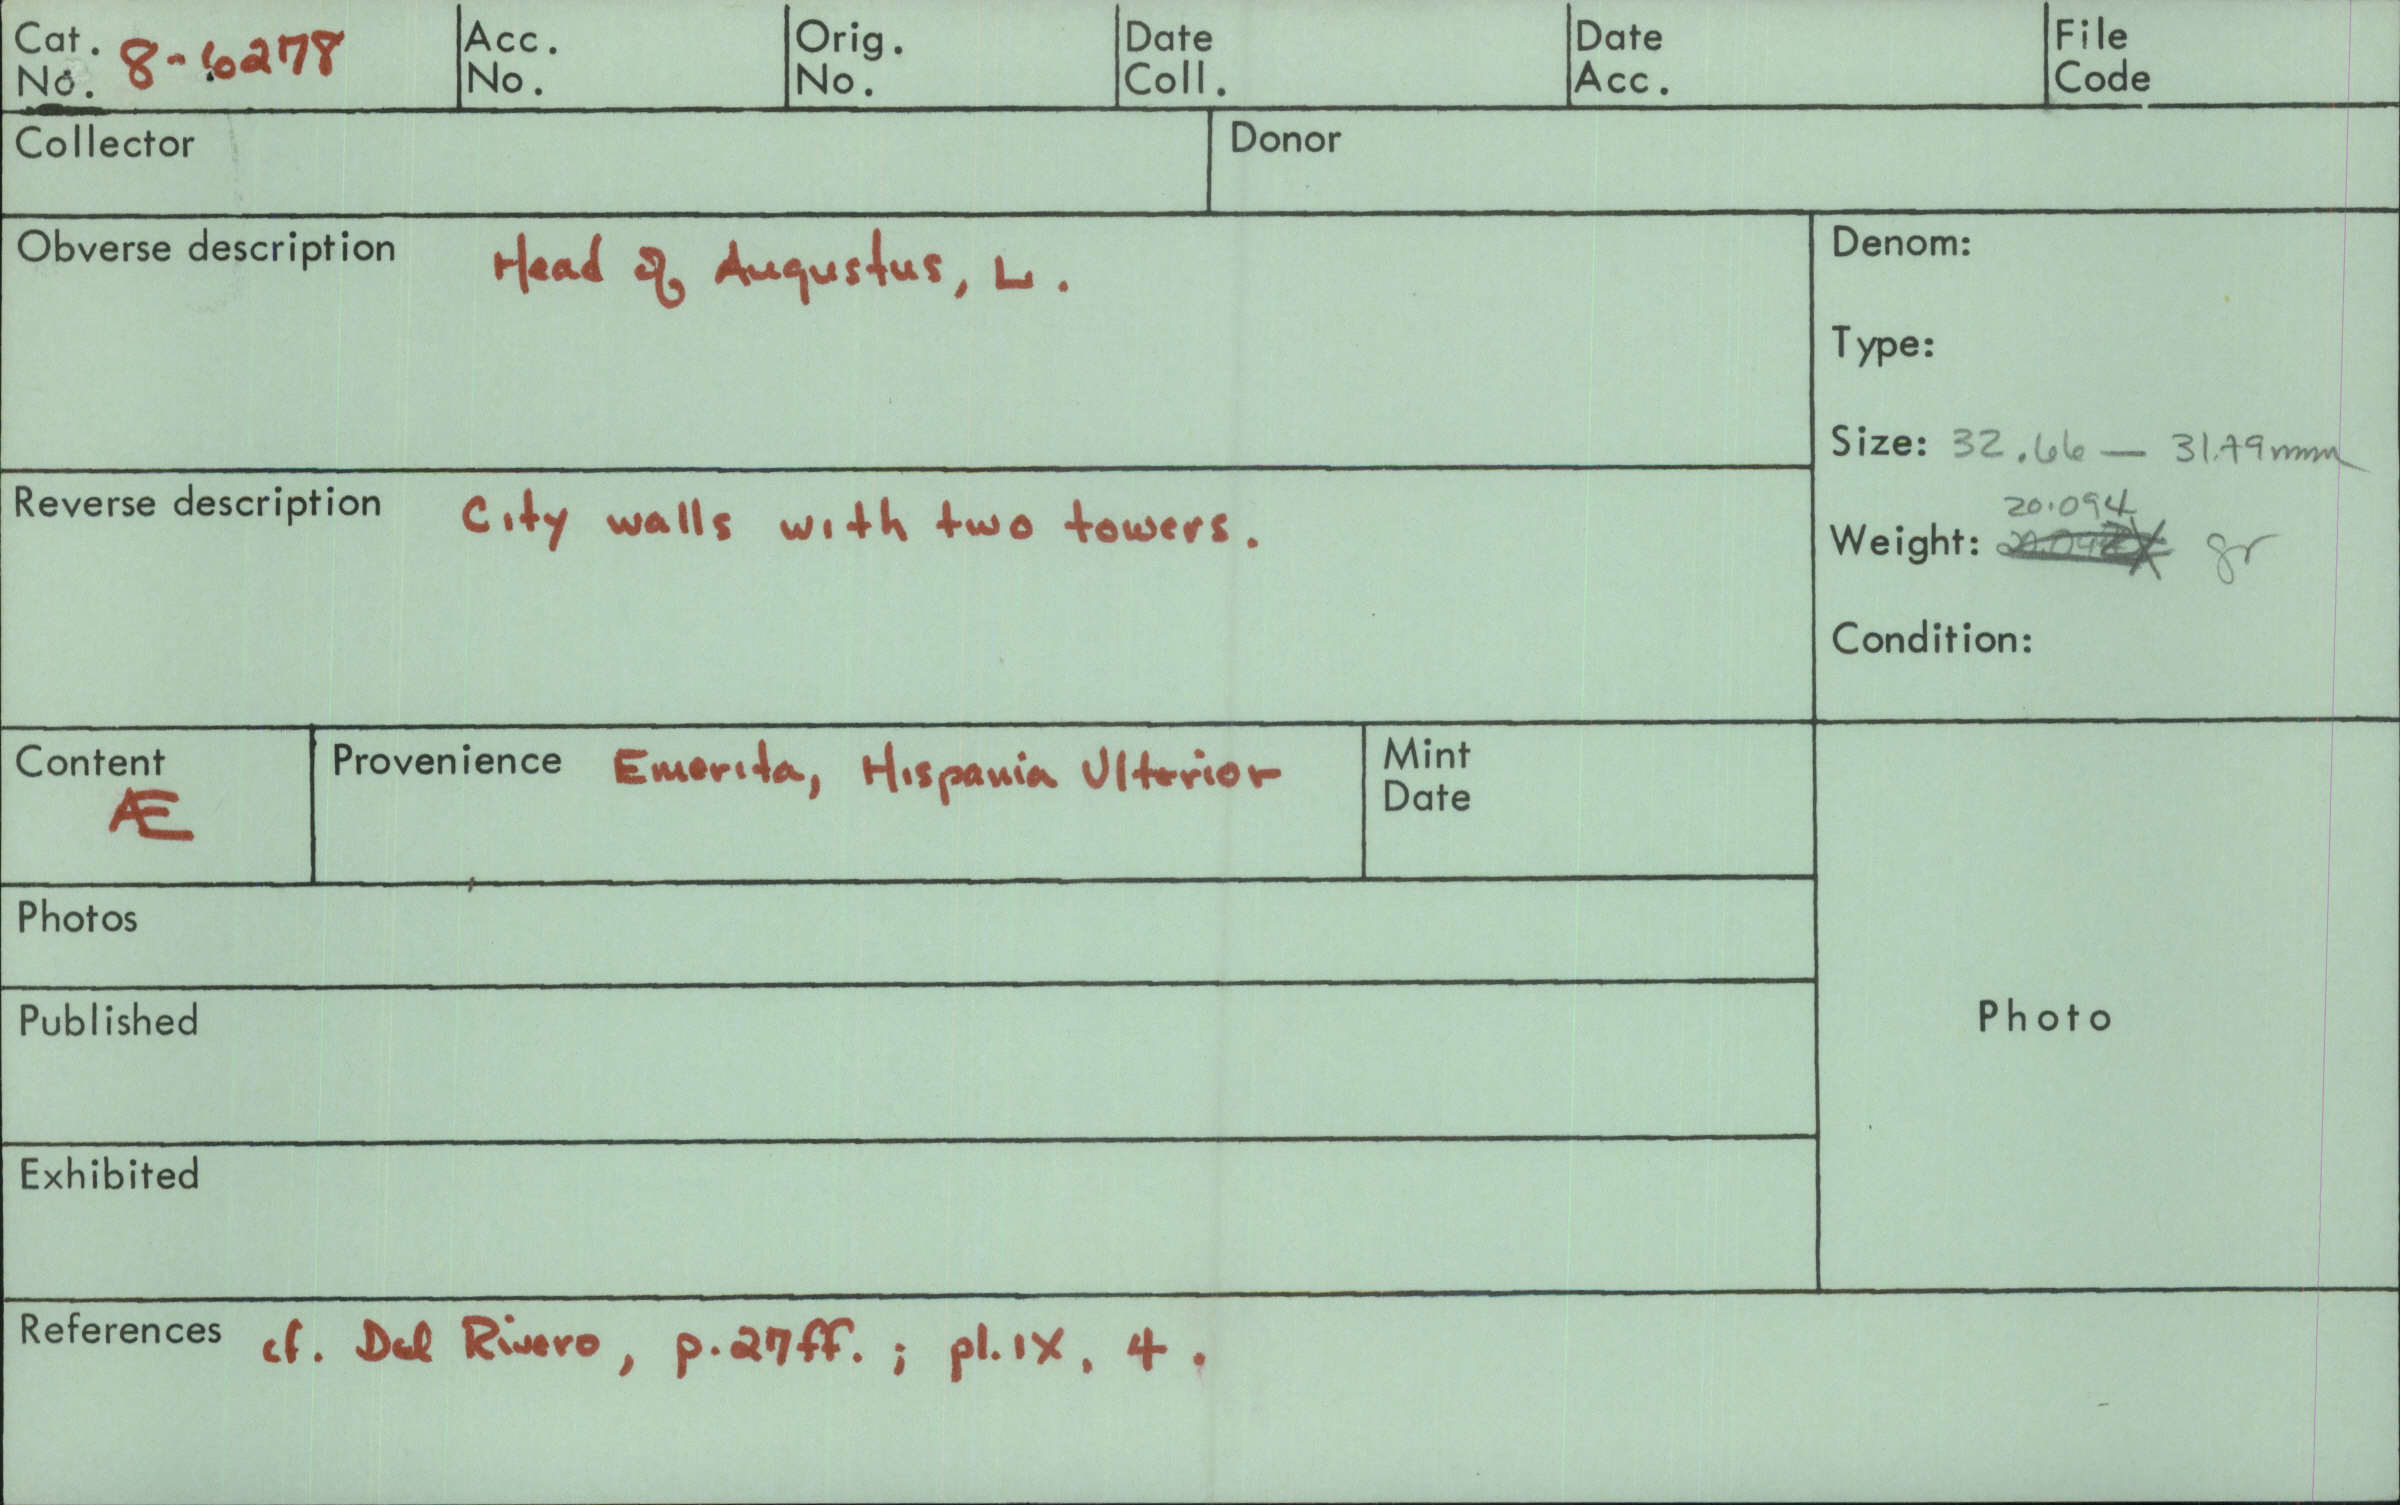 Cat. No. 8-6278
Acc. No.
Orig. No.
Date Coll.
Date Acc.
File Code
Collector
Donor
Obverse description Head of Augustus, L.
Denom:
Type:
Size: 32.66 — 31.79mm
Reverse description City walls with two towers.
20.094
Weight: gr
Condition:
Content
Æ
Provenience Emerita, Hispania Ulterior
Mint
Date
Photos
Published
Photo
Exhibited
References cf. Del Rivero, p.27ff.; pl.IX, 4.